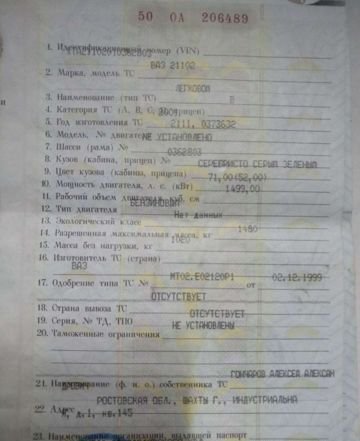 50 ОЛ 206489
1. Идентификационный номер (VIN)
ВАЗ 21102
2. Марка, модель ТС
ЛЕГКОВОЙ
3. Наименование (тип ТС)
B
4. Категория ТС (A, B, C, D, прицеп)
2001
5. Год изготовления ТС
2111, 0373632
6. Модель, № двигателя
НЕ УСТАНОВЛЕНО
7. Шасси (рама) №
0362803
8. Кузов (кабина, прицеп) №
СЕРЕБРИСТО СЕРЫЙ ЗЕЛЕНЫЙ
9. Цвет кузова (кабины, прицепа)
71,00(52,00)
10. Мощность двигателя, л. с. (кВт)
1499,00
11. Рабочий объем двигателя, куб. см
БЕНЗИНОВЫЙ
12. Тип двигателя
Нет данных
13. Экологический класс
1480
14. Разрешенная максимальная масса, кг
1020
15. Масса без нагрузки, кг
16. Изготовитель ТС (страна)
ВАЗ
МТ02.Е02120Р1 02.12.1999
17. Одобрение типа ТС № от
ОТСУТСТВУЕТ
18. Страна вывоза ТС
ОТСУТСТВУЕТ
19. Серия, № ТД, ТПО
НЕ УСТАНОВЛЕНЫ
20. Таможенные ограничения
ГОНЧАРОВ АЛЕКСЕЙ АЛЕКСАН
21. Наименование (ф. и. о.) собственника ТС
РОСТОВСКАЯ ОБЛ., ШАХТЫ Г., ИНДУСТРИАЛЬНА
22. Адрес
Я, д.1, кв.145
23. Наименование организации, выдавшей паспорт